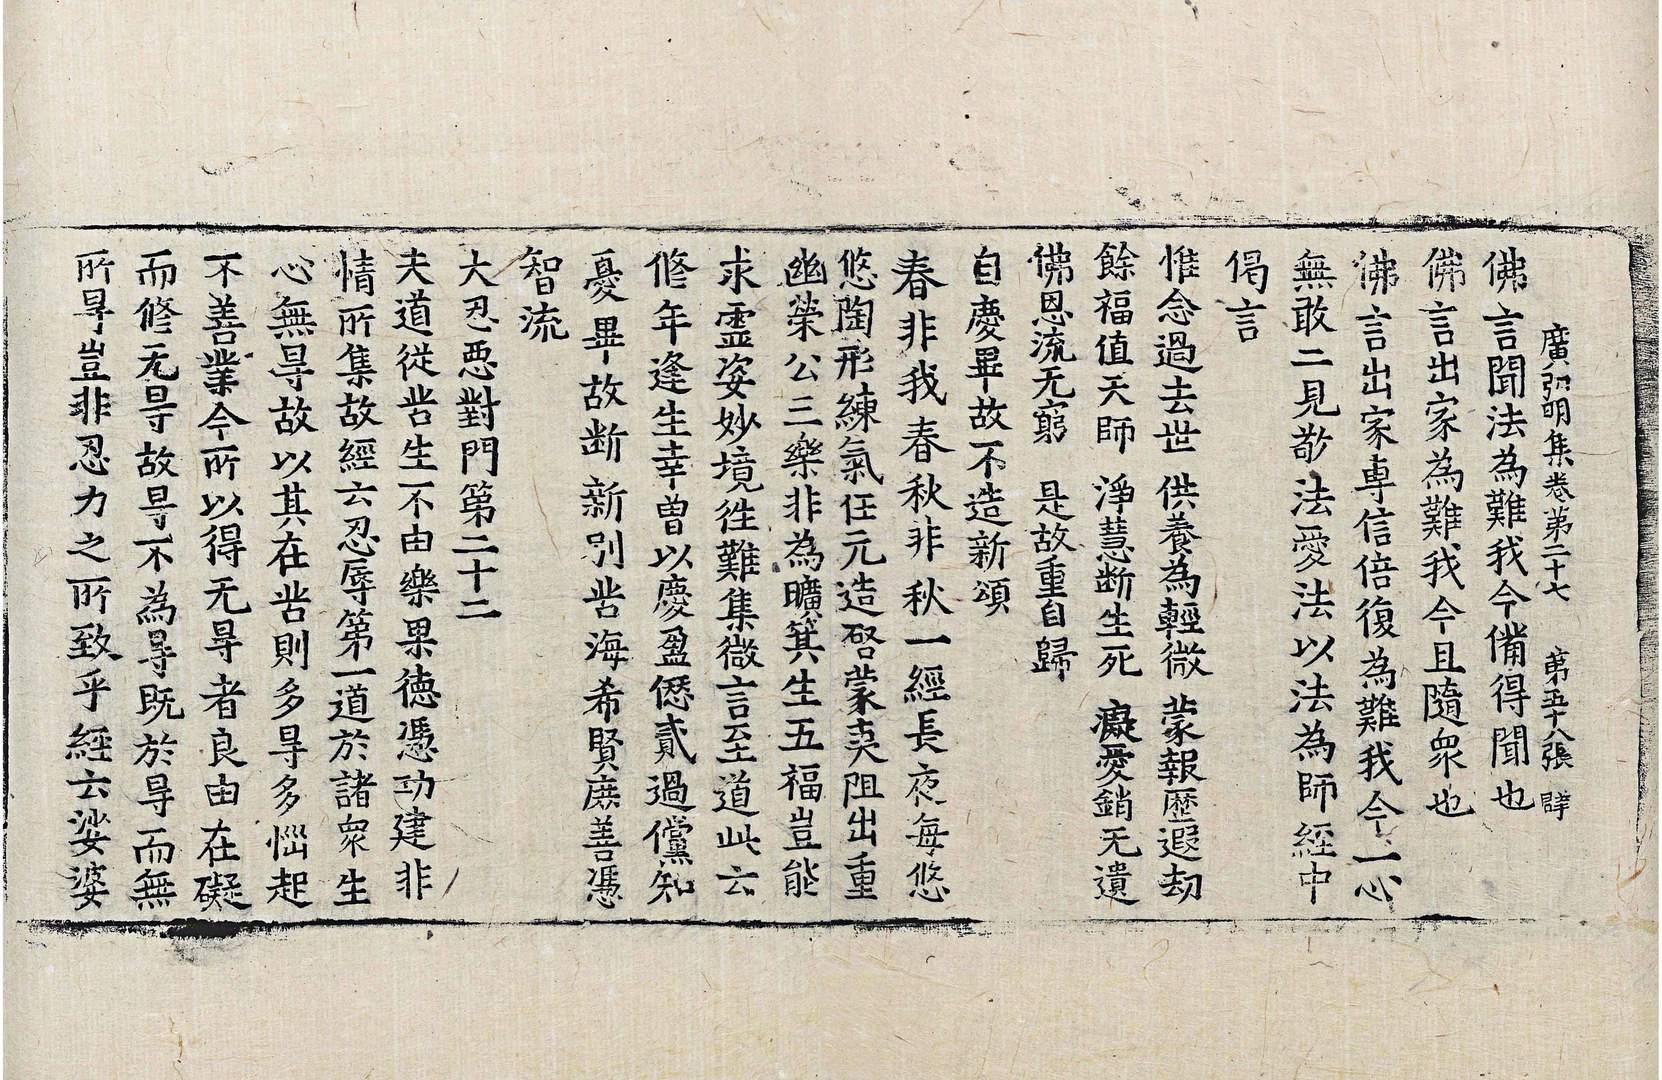 廣弘明集卷第二十七 第五十八張 詳
佛言聞法為難我今備得聞也
佛言出家為難我今且隨眾也
佛言出家專信倍復為難我今一心
無敢二見敬法愛法以法為師經中
偈言
惟念過去世 供養為輕微 蒙報歷遐劫
餘福值天師 淨慧斷生死 癡愛銷无遺
佛恩流无窮 是故重自歸
自慶畢故不造新頌
春非我春秋非秋一經長夜每悠
悠陶形練氣任元造啓蒙夷阻出重
幽榮公三樂非為曠箕生五福豈能
求靈姿妙境徃難集微言至道此云
修年逢生幸曾以慶盈僁貳過儻知
憂畢故斷新別苦海希賢庶善憑
智流
大忍惡對門第二十二
夫道從苦生不由樂果德憑功建非
情所集故經云忍辱第一道於諸眾生
心無㝵故以其在苦則多㝵多惱起
不善業今所以得无㝵者良由在礙
而修无㝵故㝵不為㝵既於㝵而無
所㝵豈非忍力之所致乎經云娑婆